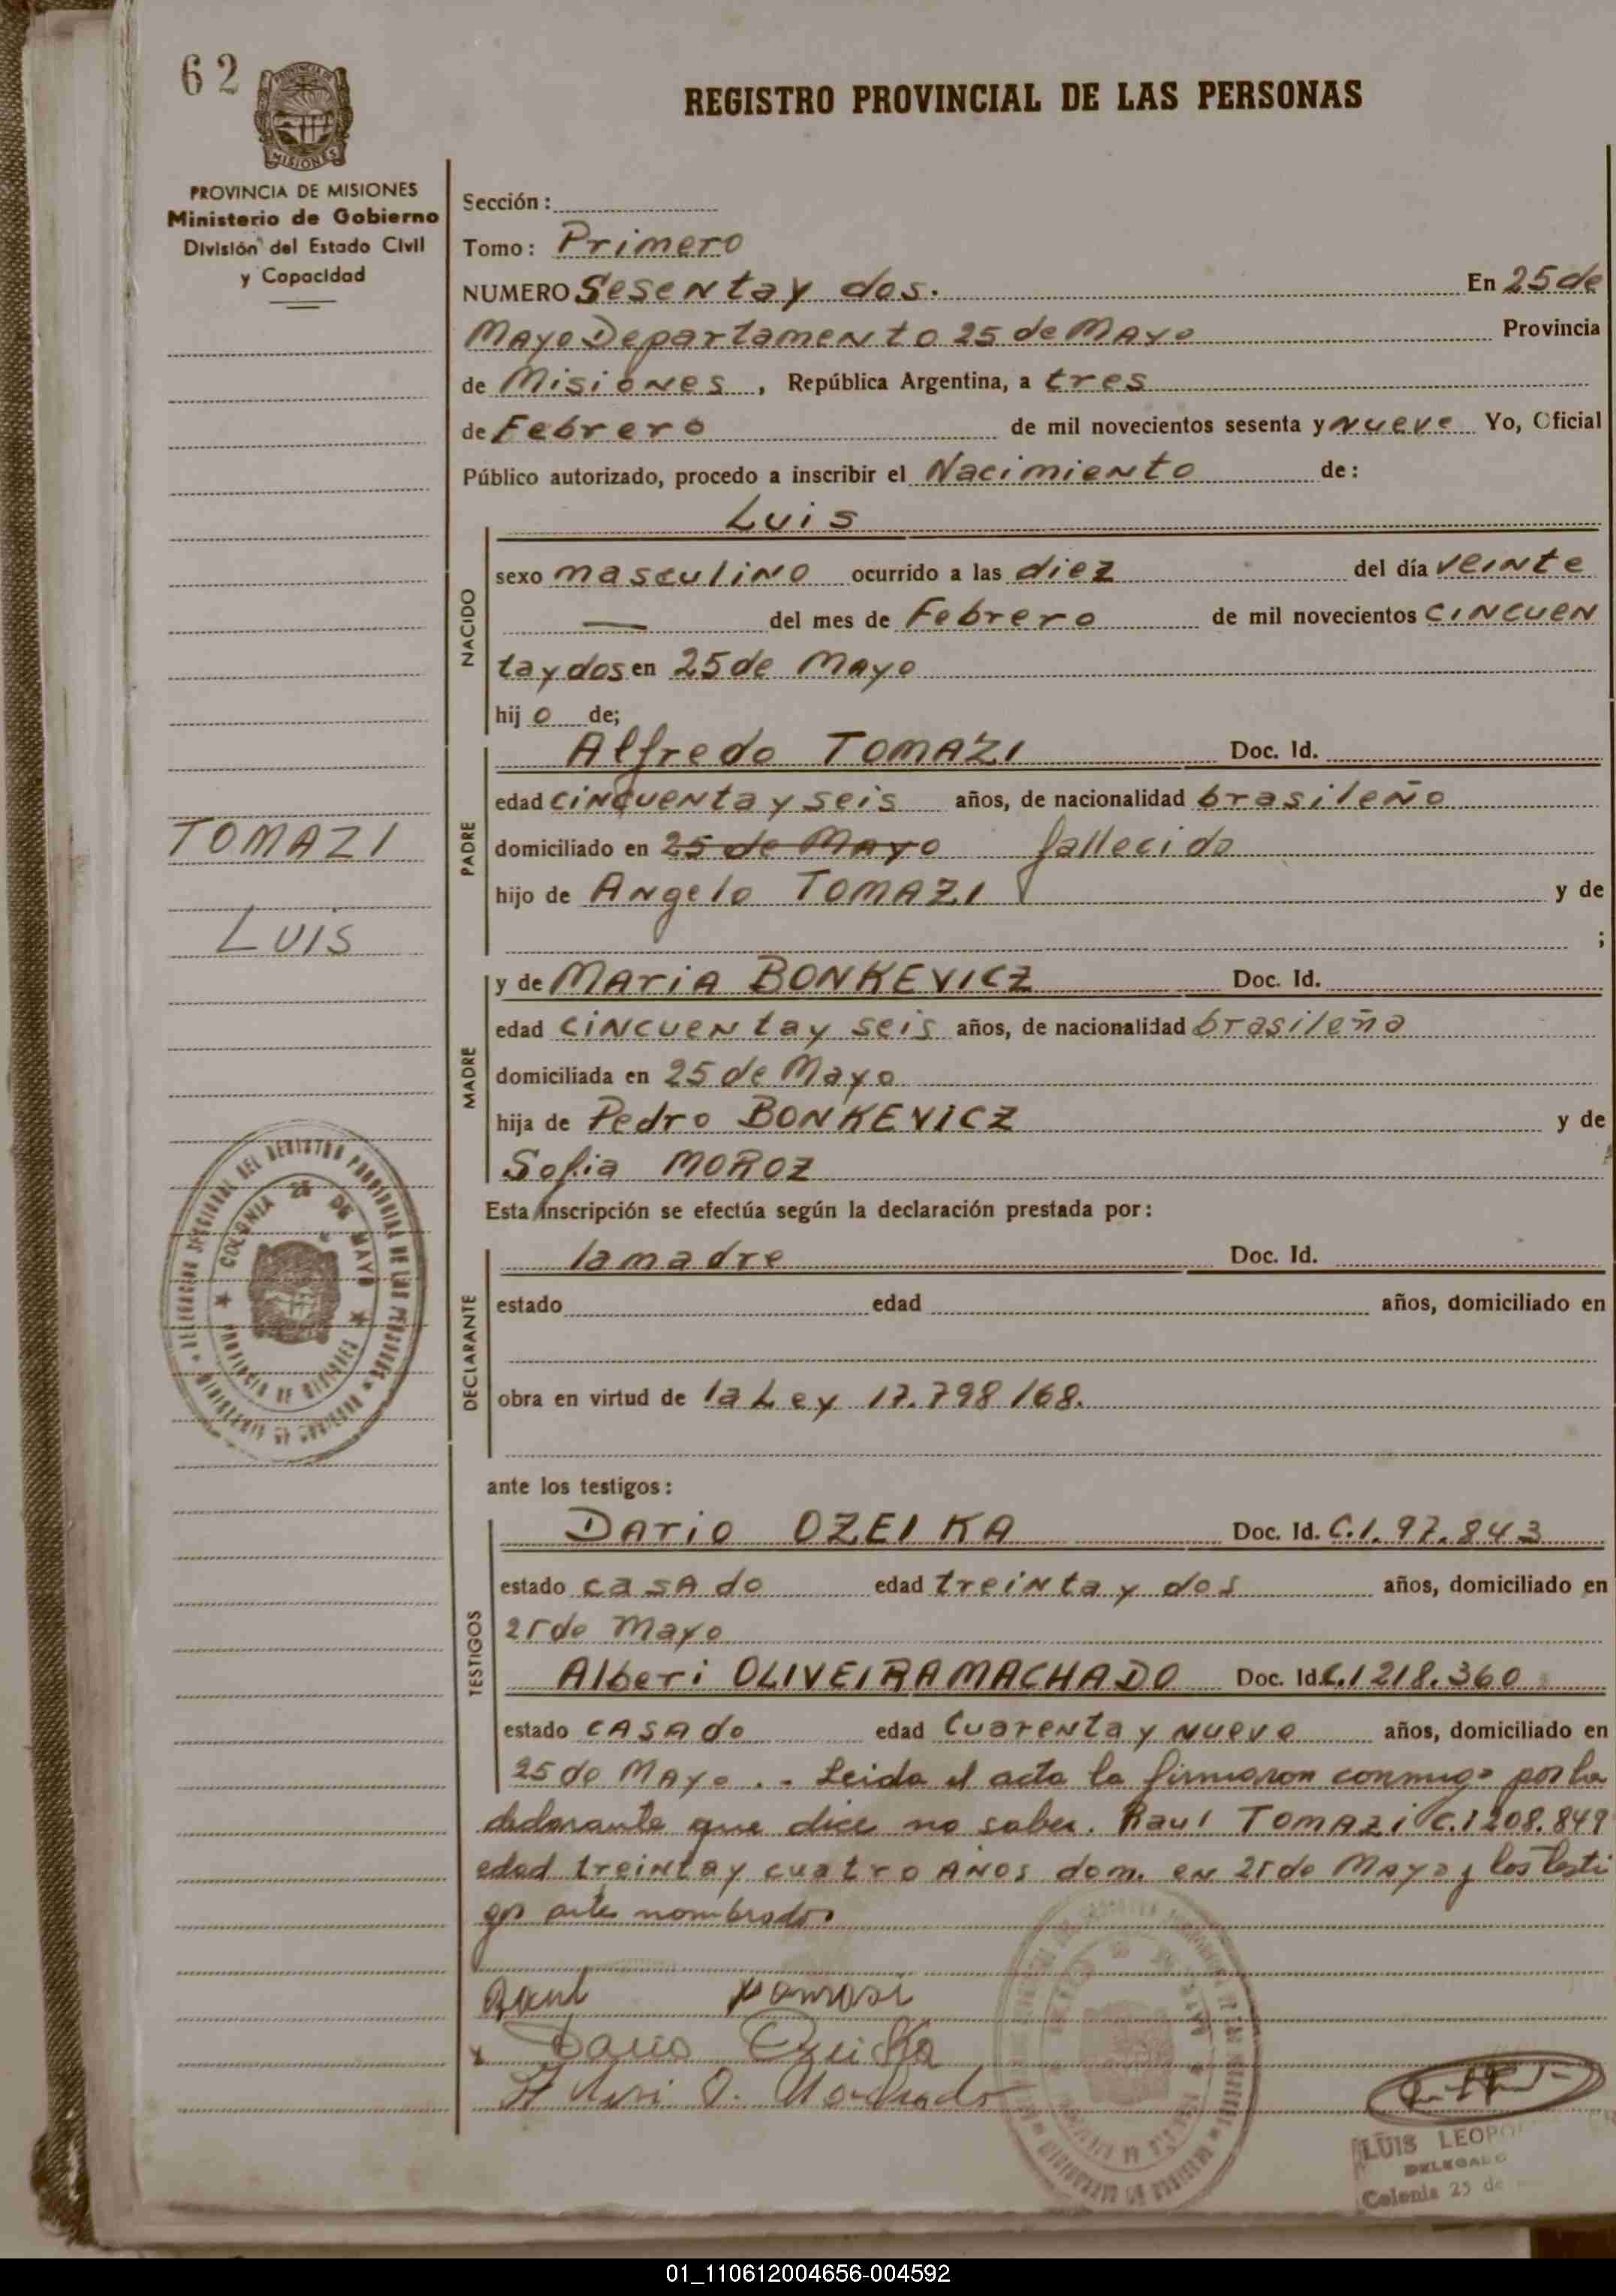 62
REGISTRO PROVINCIAL DE LAS PERSONAS
MISIONES
PROVINCIA DE MISIONES
Ministerio de Gobierno
División del Estado Civil
y Capacidad
Sección:
Tomo: Primero
NUMERO Sesenta y dos. En 25 de
Mayo Departamento 25 de Mayo Provincia
de Misiones, República Argentina, a tres
de Febrero de mil novecientos sesenta y nueve Yo, Oficial
Público autorizado, procedo a inscribir el Nacimiento de:
NACIDO
Luis
sexo masculino ocurrido a las diez del día veinte
— del mes de Febrero de mil novecientos cincuen
ta y dos en 25 de Mayo
hij o de;
PADRE
Alfredo TOMAZI Doc. Id.
edad cincuenta y seis años, de nacionalidad brasileño
domiciliado en 25 de Mayo fallecido
hijo de Angelo TOMAZI y de
;
TOMAZI
LUIS
MADRE
y de MARIA BONKEVICZ Doc. Id.
edad cincuenta y seis años, de nacionalidad brasileña
domiciliada en 25 de Mayo
hija de Pedro BONKEVICZ y de
Sofia MOROZ
Esta inscripción se efectúa según la declaración prestada por:
DECLARANTE
la madre Doc. Id.
estado edad años, domiciliado en
obra en virtud de la Ley 17.798/68.
COLONIA 25 DE MAYO
PROVINCIA DE MISIONES
ante los testigos:
TESTIGOS
Dario OZEIKA Doc. Id. C.I. 97.843
estado casado edad treinta y dos años, domiciliado en
25 de Mayo
Alberi OLIVEIRA MACHADO Doc. Id. C.I 218.360
estado casado edad Cuarenta y nueve años, domiciliado en
25 de Mayo. - Leida el acta la firmaron conmigo por la
declarante que dice no saber. Raul TOMAZI C.I 208.849
edad treinta y cuatro años dom. en 25 de Mayo y los testi
gos antes nombrados
Raul Tomasi
Dario Ozeika
Alberi O. Machado
LUIS LEOPO
DELEGADO
Colonia 25 de
01_110612004656-004592